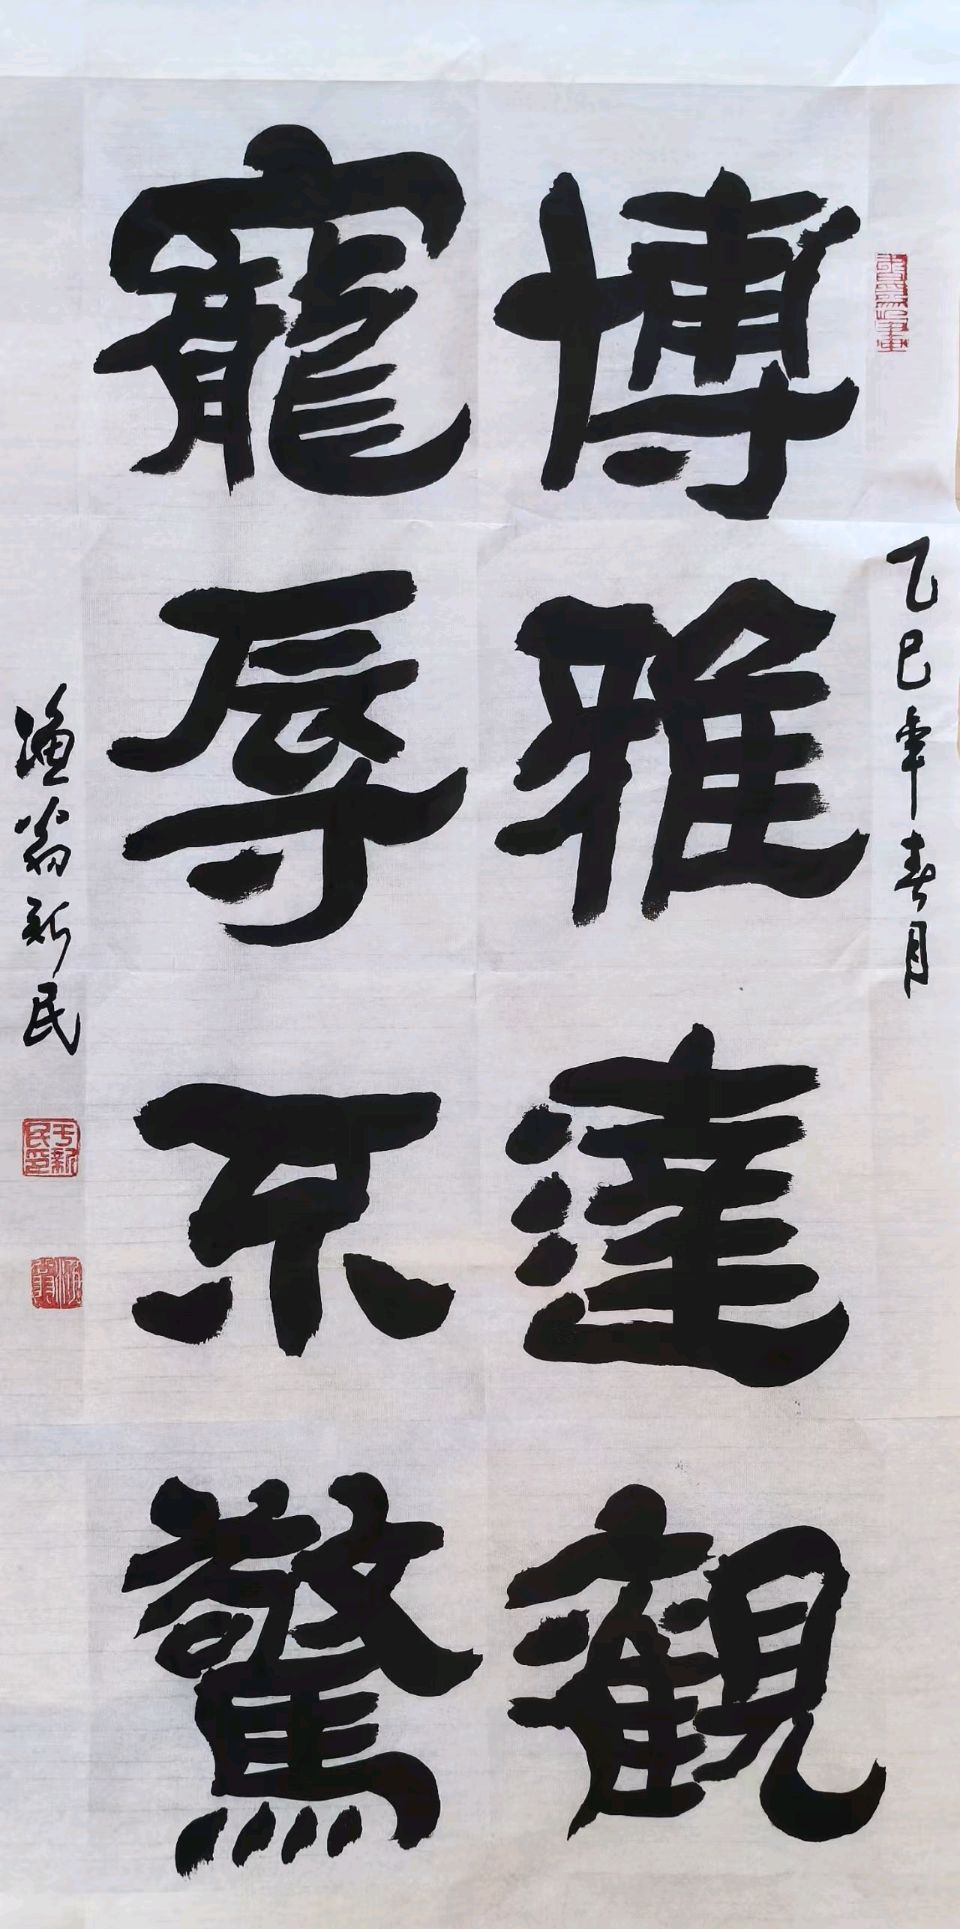 乙巳年春月
博雅達觀
寵辱不驚
漁翁新民
于新民印